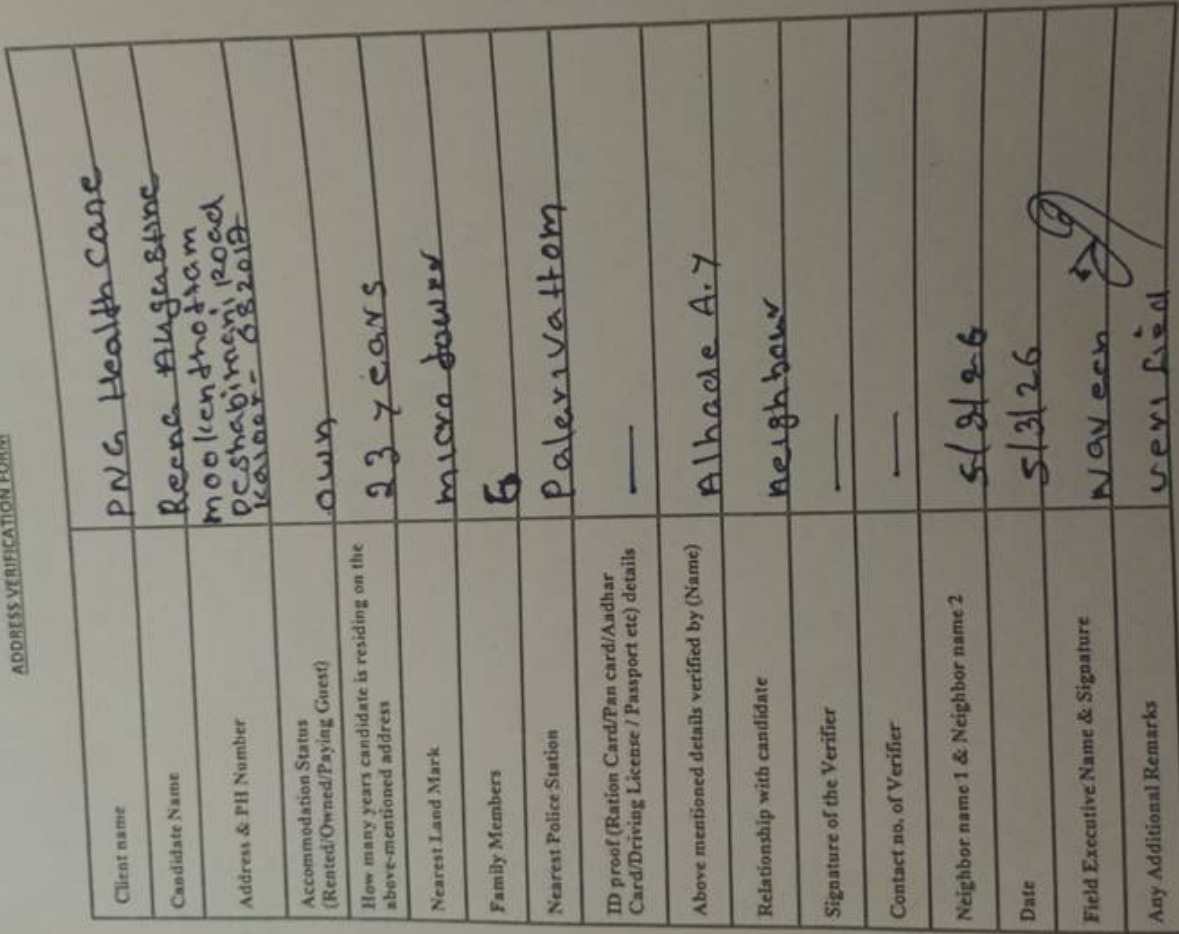 ADDRESS VERIFICATION FORM
Client name PNG Health Care
Candidate Name Reena Augustine
Address & PH Number mookenthotham
Deshabimani Road
Kaloor - 682017
Accommodation Status
(Rented/Owned/Paying Guest) own
How many years candidate is residing on the
above-mentioned address 23 years
Nearest Land Mark micro tower
Family Members 5
Nearest Police Station Palarivattom
ID proof (Ration Card/Pan card/Aadhar
Card/Driving License / Passport etc) details —
Above mentioned details verified by (Name) Alhade A.Y
Relationship with candidate neighbour
Signature of the Verifier —
Contact no. of Verifier —
Neighbor name 1 & Neighbor name 2
Date 5/3/26
Field Executive Name & Signature Naveen
Any Additional Remarks verified